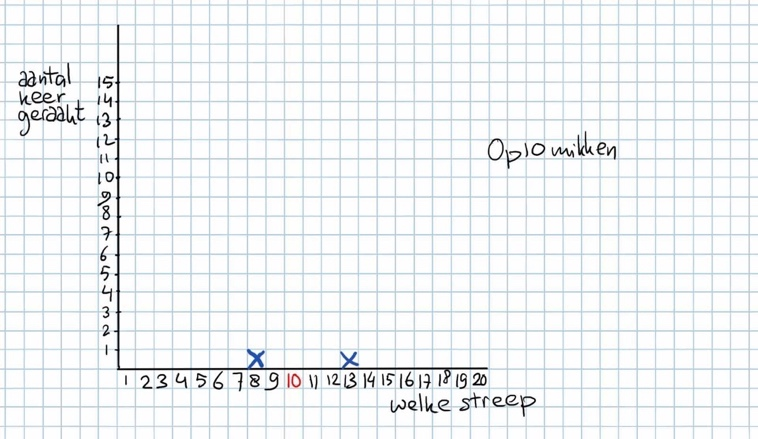 aantal
keer
geraakt
15
14
13
12
11
10
9
8
7
6
5
4
3
2
1
Op 10 mikken
X X
1 2 3 4 5 6 7 8 9 10 11 12 13 14 15 16 17 18 19 20
welke streep